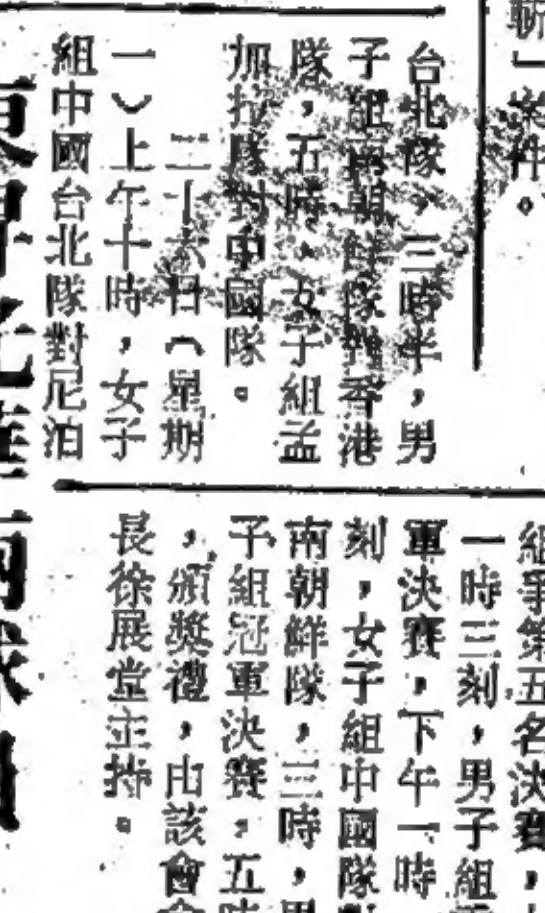 斬」案件。
台北隊，三時半，男
子組南朝鮮隊對香港
隊，五時，女子組孟
加拉隊對中國隊。
二十六日（星期
一）上午十時，女子
組中國台北隊對尼泊
組爭第五名決賽，
一時三刻，男子組
軍決賽，下午一時
刻，女子組中國隊
南朝鮮隊，三時，男
子組冠軍決賽，五時
，頒獎禮，由該會會
長徐展堂主持。